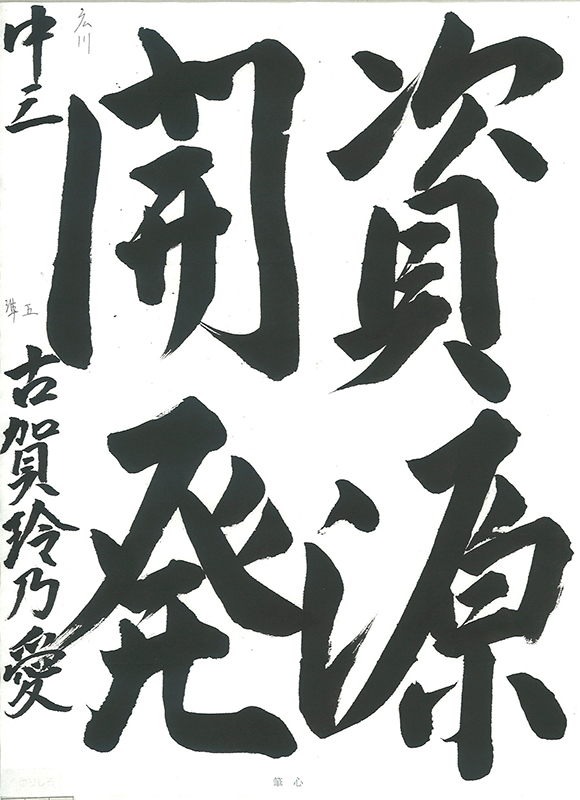 資源
開発
広川
中三
準五
古賀玲乃愛
筆心